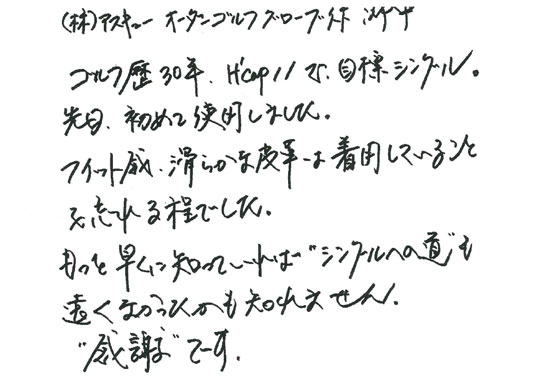 (株)アスキュー オーダーゴルフグローブ 係
ゴルフ歴30年、H'cap11で、目標シングル。
先日、初めて使用しました。
フィット感、滑らかな皮革は着用していること
を忘れる程でした。
もっと早くに知っていれば“シングルへの道”も
遠くなかったかも知れません。
“感謝”です。